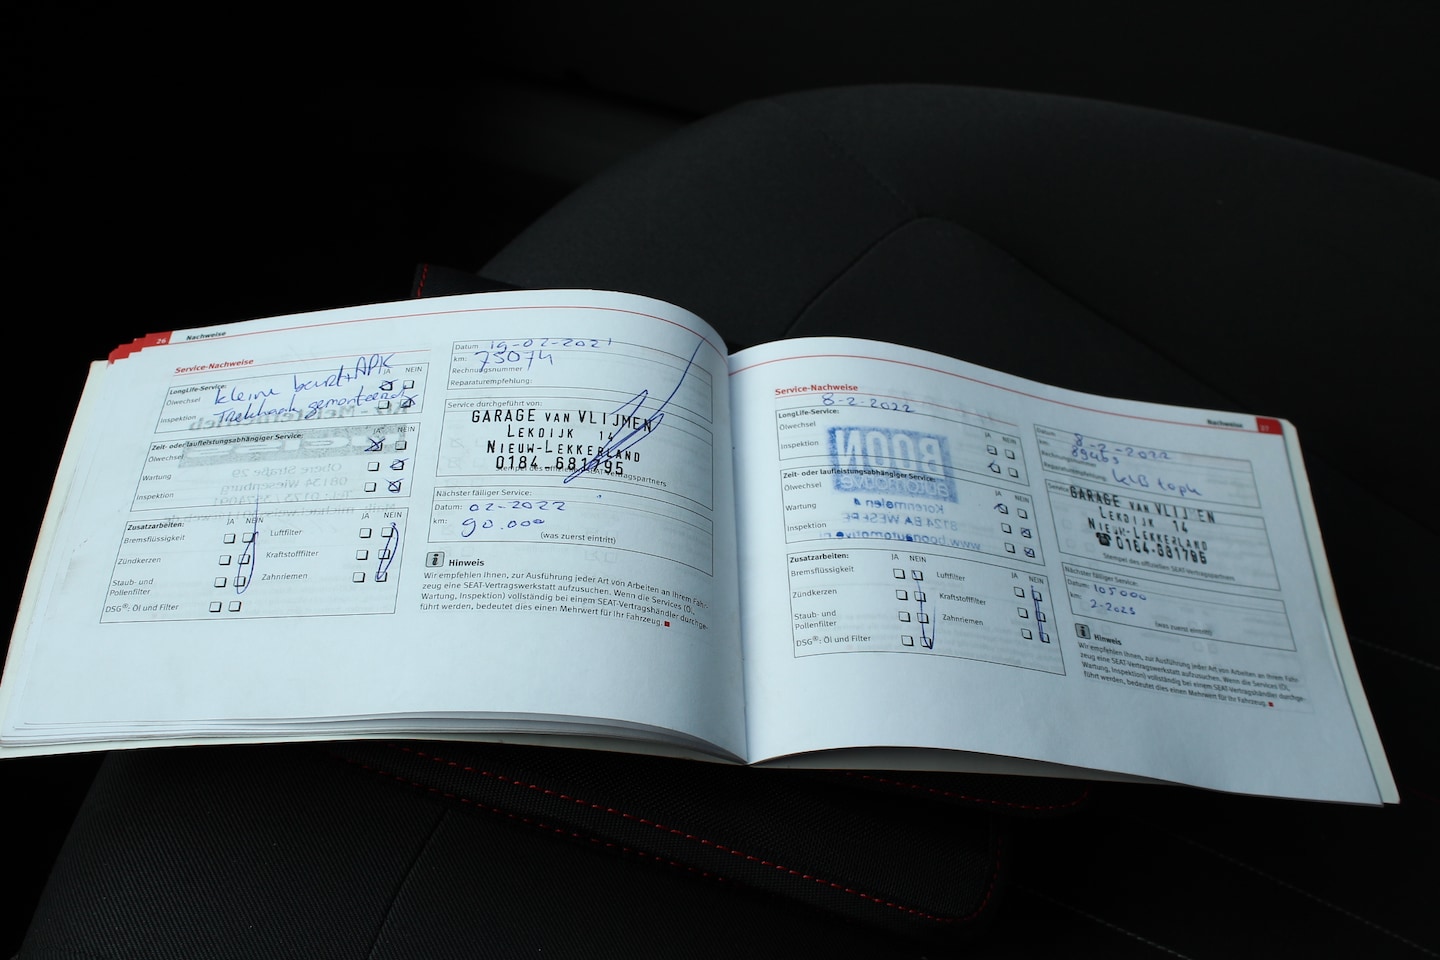 26 Nachweise
Service-Nachweise
LongLife-Service:
JA NEIN
kleine beurt + APK
Ölwechsel
Trekhaak gemonteerd
Inspektion
Zeit- oder laufleistungsabhängiger Service:
JA NEIN
Ölwechsel
Wartung
Inspektion
Zusatzarbeiten:
JA NEIN
JA NEIN
Bremsflüssigkeit
Luftfilter
Zündkerzen
Kraftstofffilter
Staub- und
Pollenfilter
Zahnriemen
DSG®: Öl und Filter
Datum 19-02-2021
km: 75074
Rechnungsnummer
Reparaturempfehlung:
Service durchgeführt von:
GARAGE VAN VLIJMEN
LEKDIJK 14
NIEUW-LEKKERLAND
0184-681795
Stempel des offiziellen SEAT-Vertragspartners
Nächster fälliger Service:
Datum: 02-2022
km: 90.000
(was zuerst eintritt)
Hinweis
Wir empfehlen Ihnen, zur Ausführung jeder Art von Arbeiten an Ihrem Fahr-
zeug eine SEAT-Vertragswerkstatt aufzusuchen. Wenn die Services (Öl,
Wartung, Inspektion) vollständig bei einem SEAT-Vertragshändler durchge-
führt werden, bedeutet dies einen Mehrwert für Ihr Fahrzeug.
Nachweise 27
Service-Nachweise
8-2-2022
LongLife-Service:
JA NEIN
Ölwechsel
Inspektion
Zeit- oder laufleistungsabhängiger Service:
JA NEIN
Ölwechsel
Wartung
Inspektion
Zusatzarbeiten:
JA NEIN
JA NEIN
Bremsflüssigkeit
Luftfilter
Zündkerzen
Kraftstofffilter
Staub- und
Pollenfilter
Zahnriemen
DSG®: Öl und Filter
Datum: 8-2-2022
km:
Rechnungsnummer
Reparaturempfehlung:
GARAGE VAN VLIJMEN
LEKDIJK 14
NIEUW-LEKKERLAND
Stempel des offiziellen SEAT-Vertragspartners
Nächster fälliger Service:
Datum: 105000
km: 2-2023
(was zuerst eintritt)
Hinweis
Wir empfehlen Ihnen, zur Ausführung jeder Art von Arbeiten an Ihrem Fahr-
zeug eine SEAT-Vertragswerkstatt aufzusuchen. Wenn die Services (Öl,
Wartung, Inspektion) vollständig bei einem SEAT-Vertragshändler durchge-
führt werden, bedeutet dies einen Mehrwert für Ihr Fahrzeug.